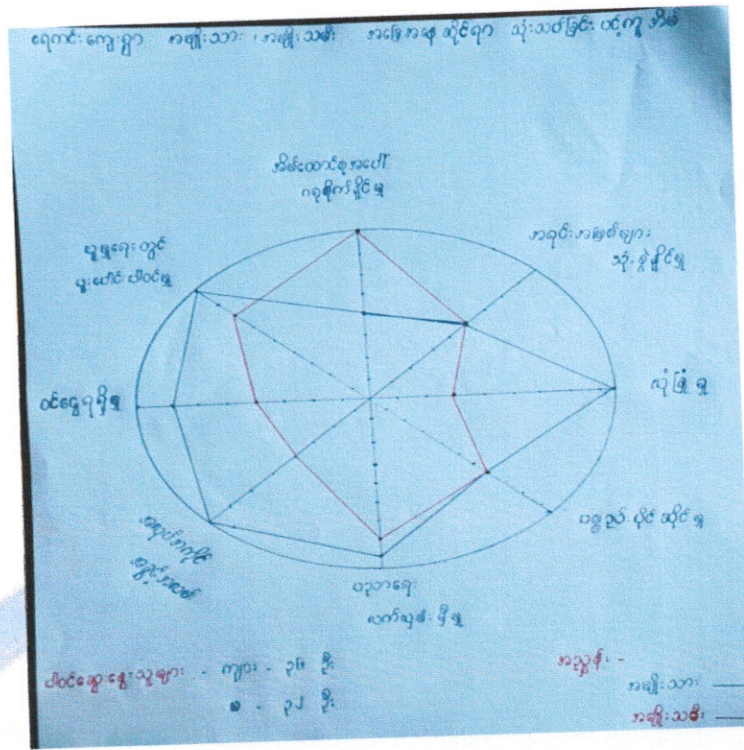 ရေကင်းကျေးရွာ အမျိုးသား၊ အမျိုးသမီး အခြေအနေ ဆိုင်ရာ သုံးသပ်ခြင်း ပင့်ကူအိမ်
အိမ်ထောင်စုအပေါ်
ဂရုစိုက်နိုင်မှု
အရင်းအမြစ်များ
သုံးစွဲနိုင်မှု
လုံခြုံမှု
ပစ္စည်းပိုင်ဆိုင်မှု
ပညာရေး
လက်လှမ်းမှီမှု
ဝင်ငွေရရှိမှု
လူမှုရေးတွင်
ပူးပေါင်းပါဝင်မှု
ပါဝင်ဆွေးနွေးသူများ - ကျား - ၃၆ ဦး
မ - ၃၂ ဦး
အညွှန်း -
အမျိုးသား
အမျိုးသမီး